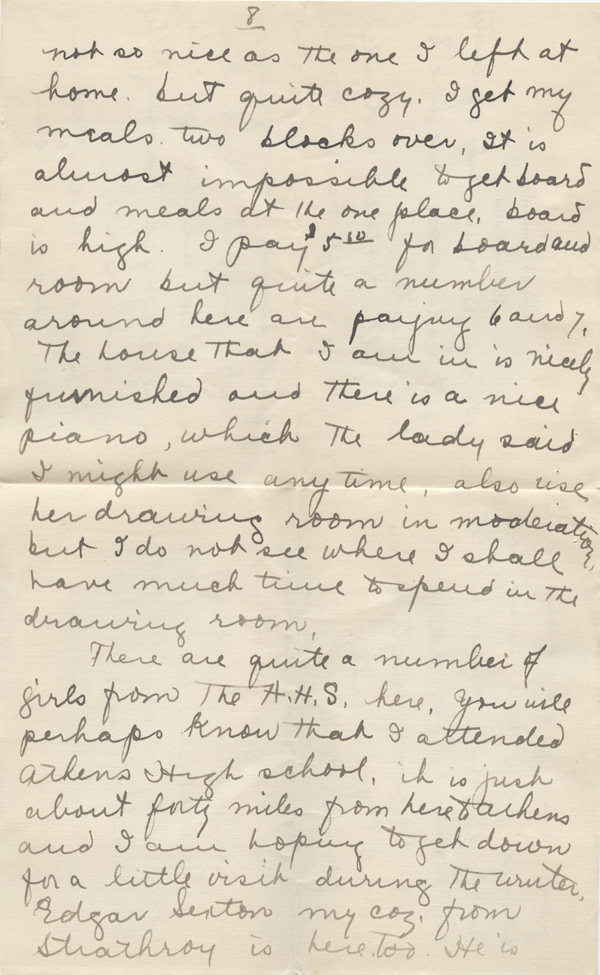 8
not so nice as the one I left at
home. but quite cozy. I get my
meals. two blocks over, It is
almost impossible to get board
and meals at the one place, board
is high. I pay $5.50 for board and
room but quite a number
around here are paying 6 and 7,
The house that I am in is nicely
furnished and there is a nice
piano, which the lady said
I might use any time, also use
her drawing room in moderation,
but I do not see where I shall
have much time to spend in the
drawing room,
There are quite a number of
girls from the A.H.S. here, you will
perhaps know that I attended
Athens High school, it is just
about forty miles from here to Athens
and I am hoping to get down
for a little visit during the winter.
Edgar Sexton my coz. from
Strathroy is here too. He is